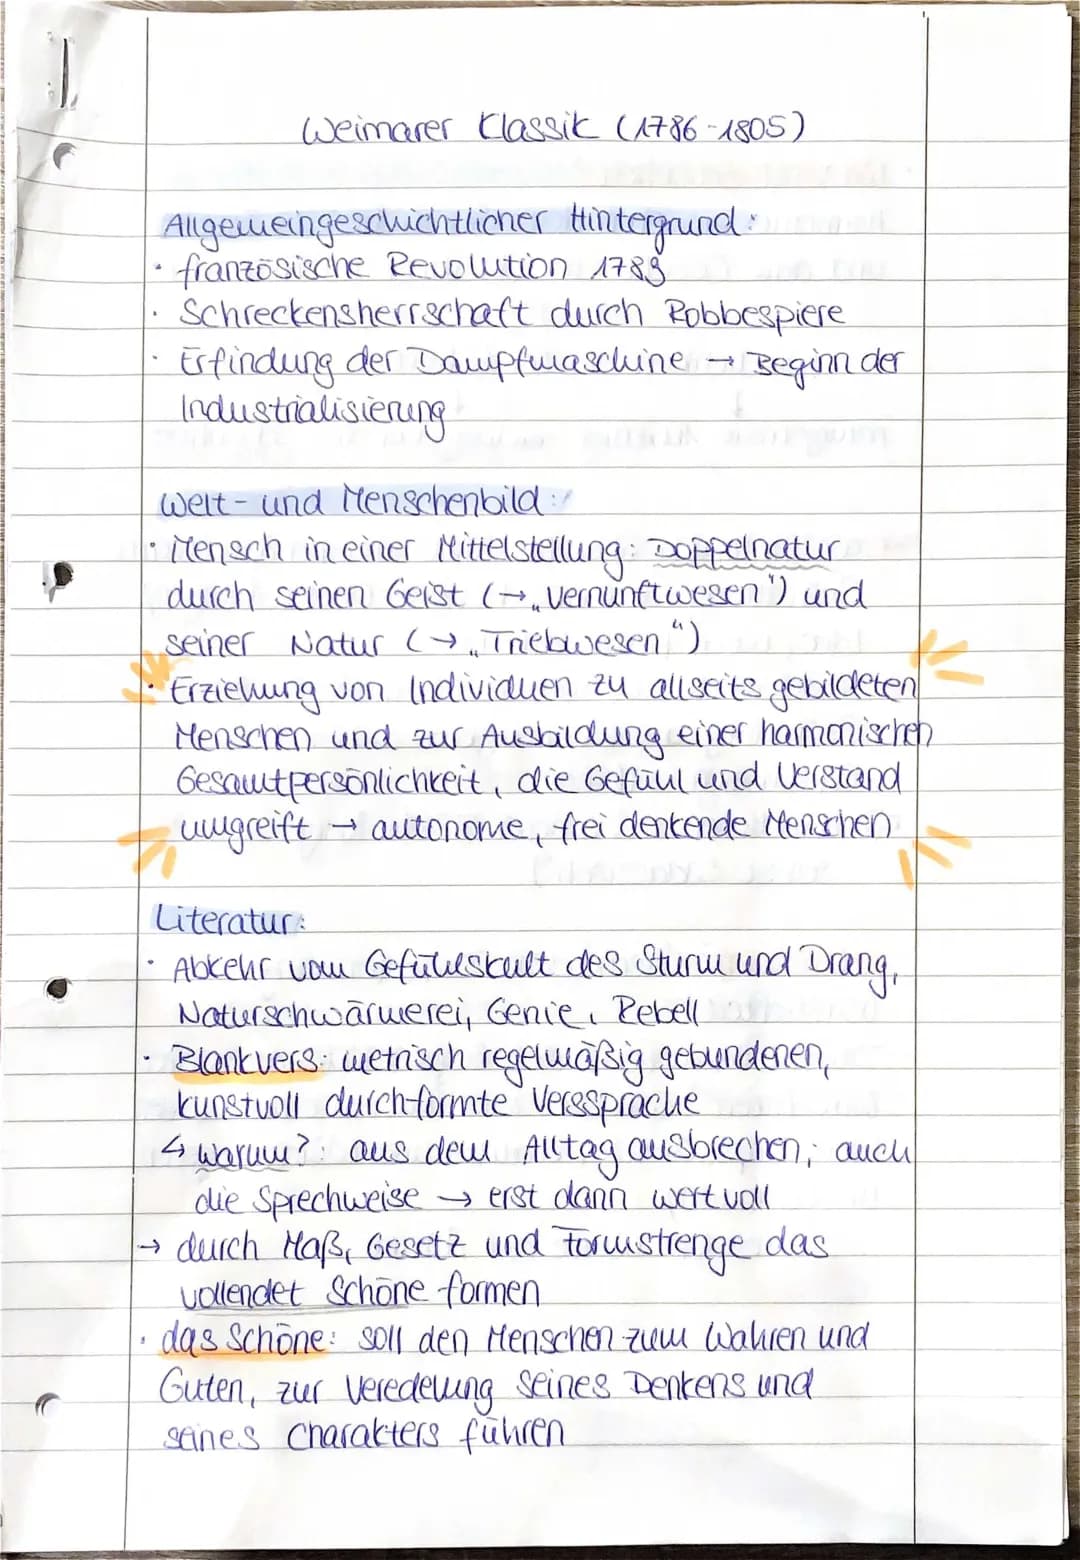 Weimarer Klassik (1786-1805)
Allgemeingeschichtlicher Hintergrund:
· französische Revolution 1789
· Schreckensherrschaft durch Robbespiere
· Erfindung der Dampfmaschine → Beginn der
Industrialisierung
Welt- und Menschenbild:
· Mensch in einer Mittelstellung: Doppelnatur
durch seinen Geist (→ „Vernunftwesen") und
seiner Natur (→ „Triebwesen")
· Erziehung von Individuen zu allseits gebildeten
Menschen und zur Ausbildung einer harmonischen
Gesamtpersönlichkeit, die Gefühl und Verstand
umgreift → autonome, frei denkende Menschen
Literatur:
· Abkehr vom Gefühlskult des Sturm und Drang,
Naturschwärmerei, Genie, Rebell
· Blankvers: metrisch regelmäßig gebundenen,
kunstvoll durchformte Verssprache
↳ warum?: aus dem Alltag ausbrechen; auch
die Sprechweise → erst dann wertvoll
→ durch Maß, Gesetz und Formstrenge das
vollendet Schöne formen
· das Schöne: soll den Menschen zum Wahren und
Guten, zur Veredelung seines Denkens und
seines Charakters führen